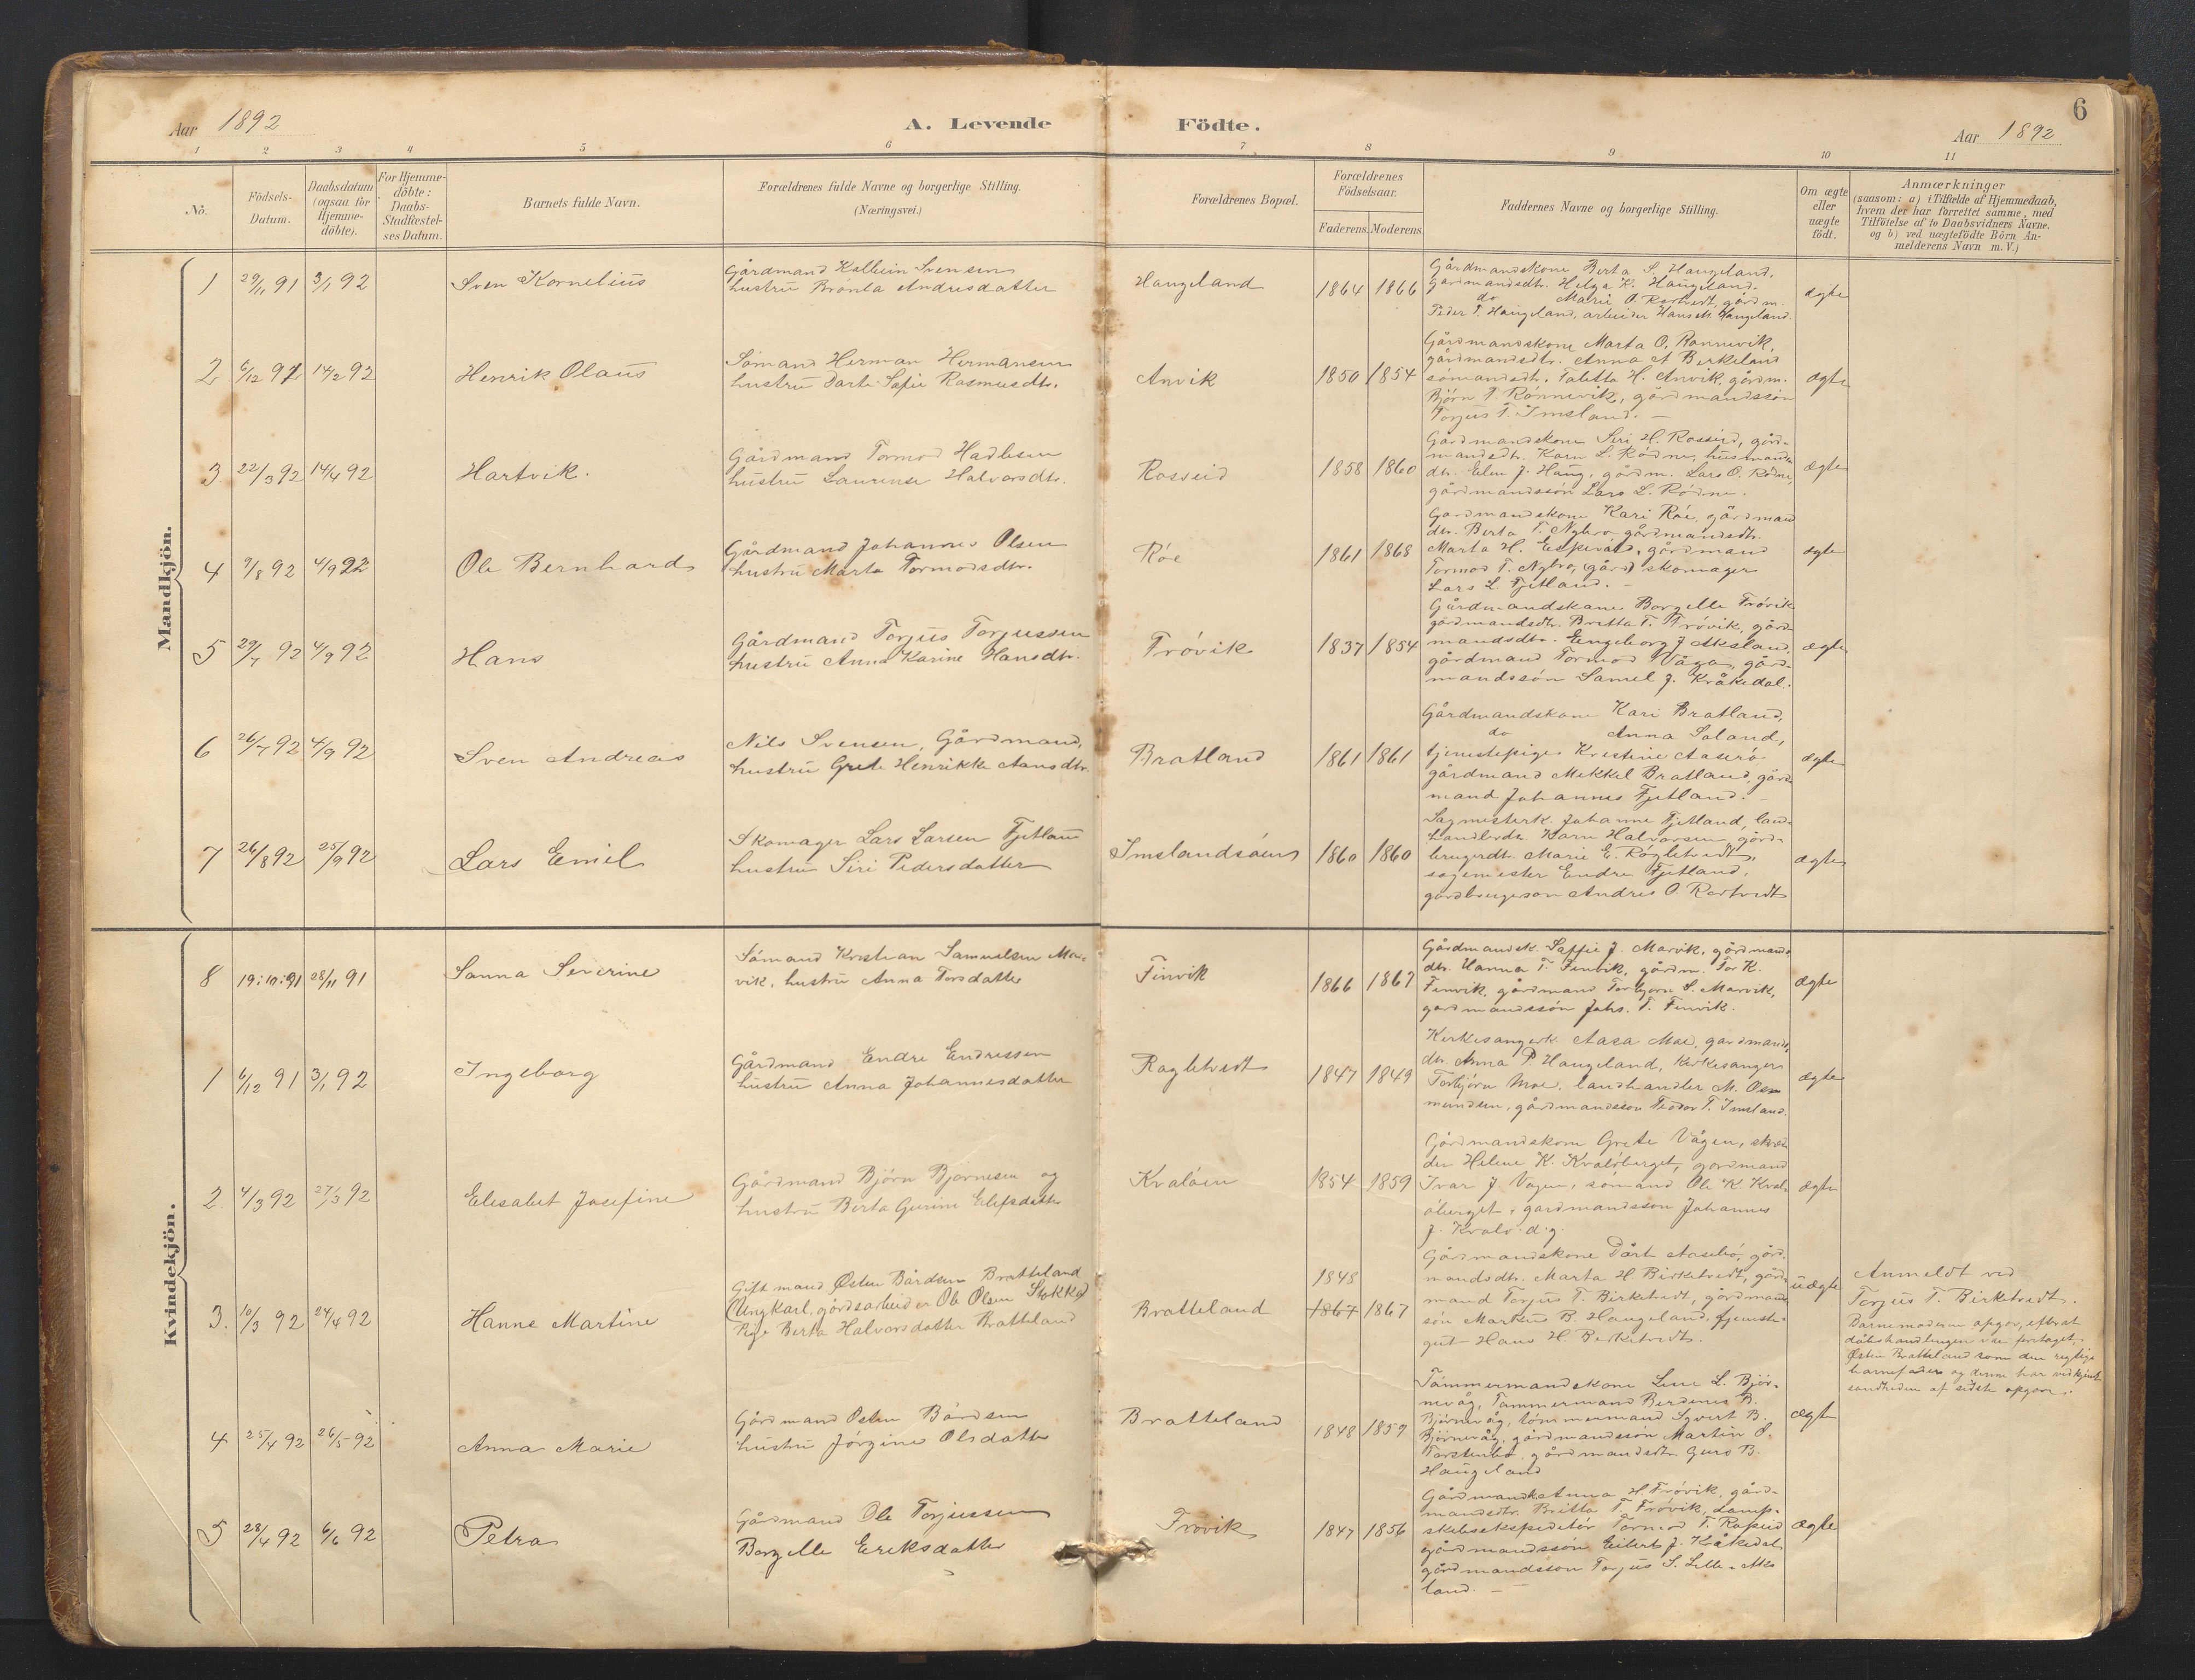 6
Aar 1892
A. Levende Födte.
Aar 1892
1 2 3 4 5 6 7 8 9 10 11
No.
Födsels-
Datum.
Daabsdatum
(ogsaa for
Hjemme-
döbte).
For Hjemme-
döbte:
Daabs-
Stadfæstel-
ses Datum.
Barnets fulde Navn.
Forældrenes fulde Navne og borgerlige Stilling.
(Næringsvei.)
Forældrenes Bopæl.
Forældrenes
Födselsaar.
Faderens. Moderens.
Faddernes Navne og borgerlige Stilling.
Om ægte
eller
uægte
födt.
Anmærkninger
(saasom: a) i Tilfælde af Hjemmedaab,
hvem der har forrettet samme, med
Tilföielse af to Daabsvidners Navne,
og b) ved uægtefödte Börn An-
melderens Navn m. V.)
Mandkjön.
1 29/11 91 3/1 92 Sven Kornelius
Gårdmand Kolbein Svensen
hustru Brønla Andreasdatter
Haugeland 1864 1866
Gårdmandskone Berta S. Haugeland,
gårdmandsdtr. Helga K. Haugeland.
do Marie O. Rertvedt, gårdm.
Peder T. Haugeland, arbeider Hans M. Haugeland.
ægte
2 6/12 91 14/2 92 Henrik Olaus
Sømand Herman Hermansen
hustru Dorte Sofie Rasmusdtr.
Anvik 1850 1854
Gårdmandskone Marta O. Rønnevik,
gårdmandsdtr. Anna A Birkeland
sømandsdtr. Taletta H. Anvik, gårdm.
Bjørn T. Rønnevik, gårdmandssøn
Torjus T. Imsland. —
ægte
3 22/3 92 14/4 92 Hartvik.
Gårdmand Tormod Hadlesen
hustru Laurense Halvorsdtr.
Rosseid 1858 1860
Gårdmandskone Siri H. Rosseid, gård-
mandsdtr. Karn L. Rødne, husmands
dtr. Elen J. Haug, gårdm. Lars O. Rødne,
gårdmandssøn Lars L. Rødne.
ægte
4 9/8 92 4/9 92 Ole Bernhard
Gårdmand Johannes Olsen
hustru Marta Tormodsdtr.
Røe 1861 1868
Gårdmandskone Kari Røe, gårdmand
dtr. Berta T. Nybro, gårdmandsdtr.
Marta H. Eskevad, gårdmand
Tormod T. Nybro, (gård) skomager
Lars L. Fjetland. —
ægte
5 29/7 92 4/9 92 Hans
Gårdmand Torjus Torjussen
hustru Anna Karine Hansdtr.
Frøvik 1837 1854
Gårdmandskone Borgelle Frøvik
gårdmandsdtr. Britta T. Frøvik, gård-
mandsdtr. Engeborg J Aksland,
gårdmand Tormod Våga, gård-
mandssøn Samel J. Kråkedal.
ægte
6 26/7 92 4/9 92 Sven Andreas
Nils Svensen, Gårdmand,
hustru Grete Henrikke Aansdtr.
Bratland 1861 1861
Gårdmandskone Kari Bratland,
do Anna Saland,
tjenestepige Kristine Aaserø
gårdmand Mikkel Bratland, gård-
mand Johannes Fjetland. —
ægte
7 26/8 92 25/9 92 Lars Emil
Skomager Lars Larsen Fjetland
hustru Siri Pedersdatter
Imslandsøen 1860 1860
Sagmesterk. Johanne Fjetland, land-
handlerdtr. Karn Halvorsen, gård-
brugerdtr. Marie E. Røgletvedt,
sagemester Endre Fjetland,
gårdbrugerson Andres O. Rertvedt
ægte
Kvindekjön.
8 19:10:91 28/11 91 Sanna Severine
Sømand Kristian Samuelsen Mar-
vik, hustru Anna Torsdatter
Finvik 1866 1867
Gårdmandsk. Saffie J. Marvik, gårdmands
dtr. Hanna T. Finvik, gårdm. Tor K.
Finvik, gårdmand Torbjørn S. Marvik,
gårdmandssøn Johs. T. Finvik.
ægte
1 6/12 91 3/1 92 Ingeborg
Gårdmand Endre Endressen
hustru Anna Johannesdatter
Ragletvedt 1847 1849
Kirkesangerk. Aasa Moe, gardmands
dtr. Anna P. Haugeland, kirkesanger
Torbjørn Moe, landhandler M. Osm
mundsen, gårdmandsson Teodor T. Imsland.
ægte
2. 4/3 92 27/3 92 Elisabet Josefine
Gårdmand Bjørn Bjørnesen og
hustru Berta Gurine Elefsdatter
Kvaløen 1854 1859
Gårdmandskone Grete Vågen, skræd-
der Helene K. Kvaløberget, gardmand
Ivar J. Vagen, sømand Ole K Kval-
øberget, gardmandsson Johannes
J. Kvalø. d.y.
ægte
3. 10/3 92 24/4 92 Hanne Martine
Gift mand Østen Bårdsen Bratteland
(Ungkarl, gårdsarbeider Ole Olsen Stokka)
Pige Berta Halvorsdatter Bratteland
Bratteland 1848 1867 1867
Gårdmandskone Dårte Aasebø, gård-
mandsdtr. Marta H Birketvedt, gård-
mand Torjus T. Birketvedt, gårdmands
søn Martin B. Haugeland, tjeneste-
gut Hans H Birketvedt.
uægte
Anmeldt ved
Torjus T. Birketvedt.
Barnemoderen opgav, efterat
dåbshandlingen var foretaget,
Østen Bratteland som den rigtige
barnefader og denne har vedkjendt
sandheden af sidste opgave.
4 25/4 92 26/5 92 Anna Marie
Gårdmand Østen Bårdsen
hustru Jørgine Olsdatter
Bratteland 1848 1859
Tømmermandskone Lene L. Bjør-
nevåg, Tømmermand Berdenes B.
Bjørnevåg, tømmermand Syvert B.
Bjørnevåg, gårdmandssøn Martin O.
Torstenbø, gårdmandsdtr. Guro B.
Haugeland
ægte
5 28/4 92 6/6 92 Petra
Gårdmand Ole Torjussen
Borgelle Eriksdatter
Frøvik 1847 1856
Gårdmandsk. Anna H. Frøvik, gård-
mandsdtr. Britta T. Frøvik, damp-
skibsekspeditør Tormod T. Ropeid
gårdmandssøn Eilert J. Kråkedal
gårdmandsson Torjus S. Lille-Aks
land. —
ægte